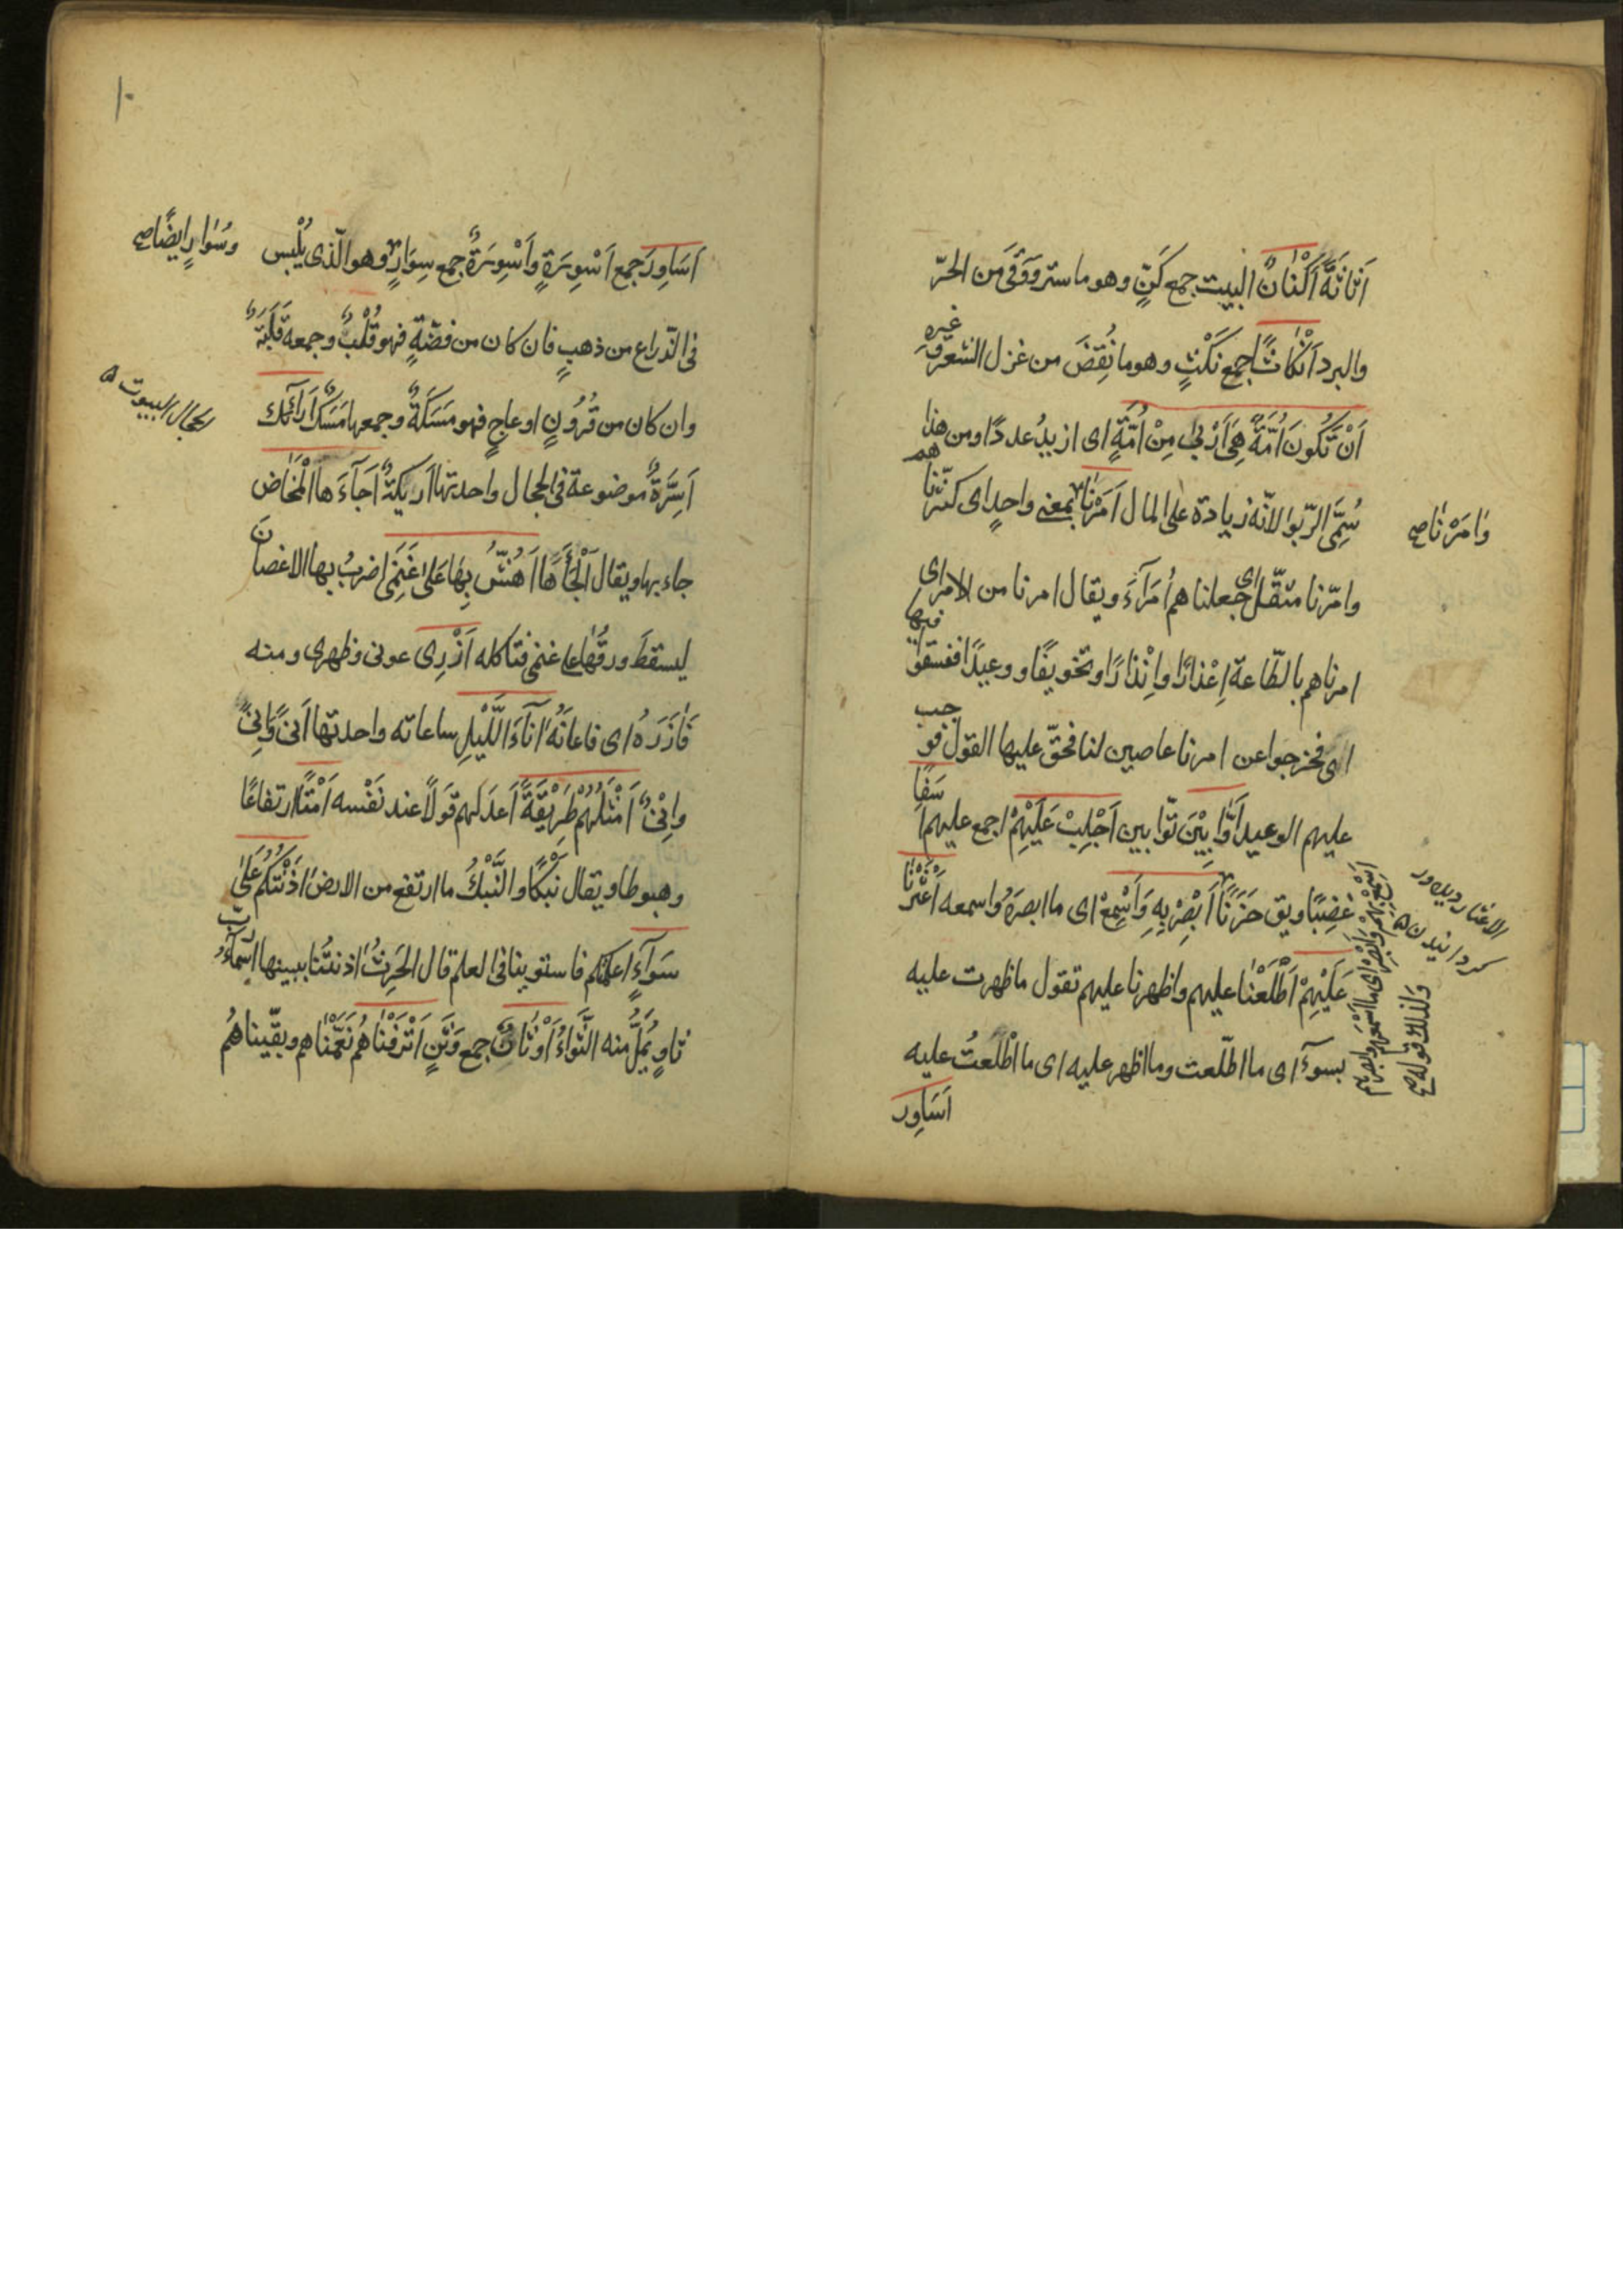 اَثَاثَةٌ اَكْنٰانٌ البيت جمع كَنٍّ وهو ما ستر ووَقَى من الحرّ
والبرد اَنْكٰاثًا جمع نَكْثٍ وهو ما نُقِضَ من غزل الشعر وغيره
اَنْ تَكُونَ اُمَّةٌ هِيَ اَرْبىٰ مِنْ اُمَّةٍ اى ازيدُ عددًا ومن هذا
سُمِّى الرّبوا لانّه زيادة على المال اَمَرْنٰا بمعنى واحدٍ اى كثّرناهم
وامَرْنٰا صح
وامّرنا مثقّل اى جعلناهم اُمَرَآءَ ويقال امرنا من الامر اى
امرناهم بالطّاعة اِعْذارًا واِنْذارًا وتخويفًا ووعيدًا ففسقوا فيها
اى فخرجوا عن امرنا عاصين لنا فحقّ عليها القول فوجب
عليهم الوعيد اَوَّابِيْنَ توّابين اَجْلِبْ عَلَيْهِمْ اجمع عليهم اَسَفًا
غضبًا ويق حَزَنًا اَبْصِرْ بِهِ وَاَسْمِعْ اى ما ابصرَهُ واسمعه اَعْثَرْنٰا
عَلَيْهِمْ اَطْلَعْنٰا عليهم واظهرنا عليهم تقول ما ظهرت عليه
بسوءٍ اى ما اطّلعت وما اظهر عليه اى ما اطّلعتُ عليه
اَسَاوِرَ
وكذلك قوله صح
اَسْمِعْ بِهِمْ وَاَبْصِرْ اى ما اسمعهم وابصرهم
١٠
اَسَاوِرَ جمع اَسْوِرَةٍ واَسْوِرَةٌ جمع سِوَارٍ وهو الّذى يُلْبس
وسُوٰارٍ ايضًا صح
فى الذّراع من ذهبٍ فان كان من فضّةٍ فهو قُلْبٌ وجمعه قَلَبَةٌ
وان كان من قُرُونٍ او عاجٍ فهو مَسَكَةٌ وجمعها مَسَكٌ اَرَائِك
الحجال البيوت
اَسِرَّةٌ موضوعة فى الحجال واحدتها اريكةٌ اَجَآءَهَا الْمَخٰاض
جاء بها ويقال اَلْجَأَهَا اَهُشُّ بِهٰا عَلىٰ غَنَمِى اضربُ بها الاغصانَ
ليسقطَ ورقُهٰا على غنمى فتاكله اَزْرِى عونى وظهرى ومنه
فَاٰزَرَهُ اى فاعانَهُ اٰنآءَ الَّليْلِ ساعاته واحدتها اَنًى وَاِنًى
واِنْىٌ اَمْثَلُهُمْ طَرِيْقَةً اَعدَلهم قولًا عند نَفْسه اَمْتًا ارتفاعًا
وهبوطا ويقال نَبْكًا والنَّبْكُ ما ارتفع من الارض اٰذَنْتُكُمْ عَلىٰ
سَوَآءٍ اعلمتكم فاستوينا فى العلم قال الحَرِثُ اٰذنتْنا ببينها اَسْمآءُ رُبّ
ثاوٍ يُمَلُّ منه الثَّوَاءُ اَوْثٰانٌ جمع وَثَنٍ اَتْرَفْنٰاهُمْ نَعَّمْنٰاهم وبقّيناهُم